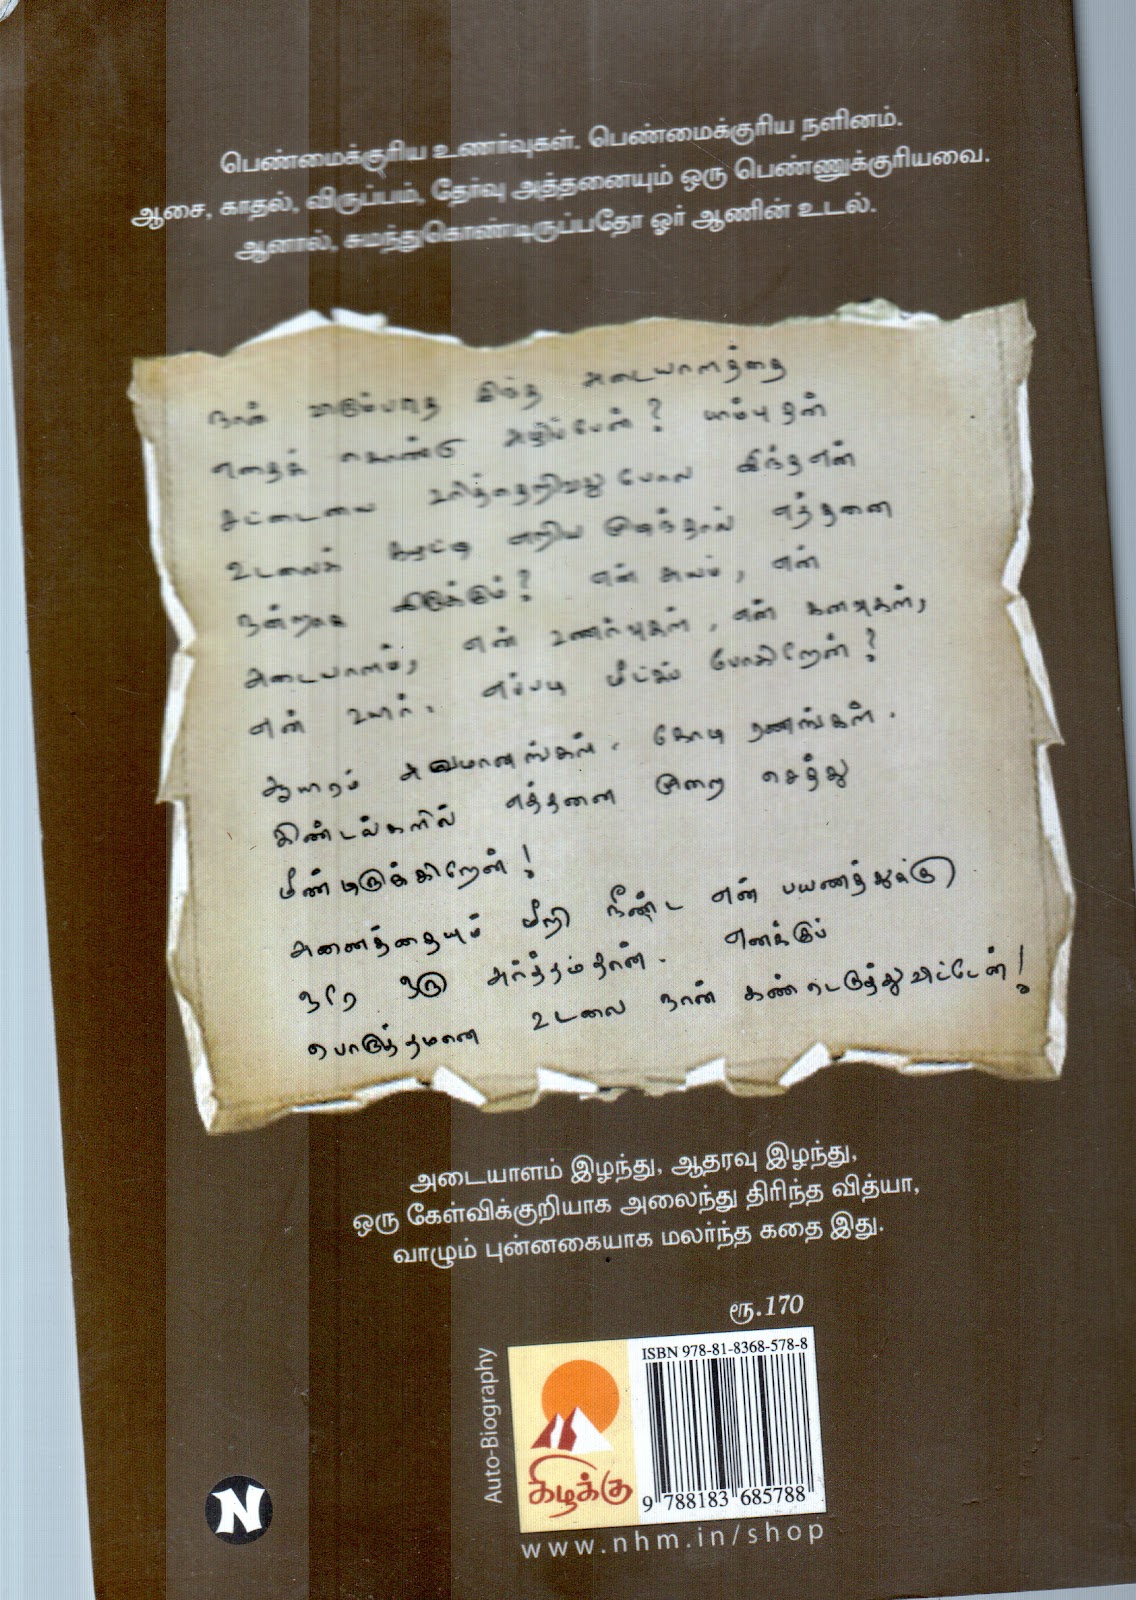 பெண்மைக்குரிய உணர்வுகள். பெண்மைக்குரிய நளினம்.
ஆசை, காதல், விருப்பம், தேர்வு அத்தனையும் ஒரு பெண்ணுக்குரியவை.
ஆனால், சுமந்துகொண்டிருப்பதோ ஓர் ஆணின் உடல்.
நான் விரும்பாத இந்த அடையாளத்தை
எதைக் கொண்டு அழிப்பேன்? பாம்பு தன்
சட்டையை உரித்தெறிவது போல இந்த என்
உடலைக் கழட்டி எறிய முடிந்தால் எத்தனை
நன்றாக இருக்கும்? என் சுயம், என்
அடையாளம், என் உணர்வுகள், என் கனவுகள்,
என் உயிர். எப்படி மீட்கப் போகிறேன்?
ஆயிரம் அவமானங்கள். கோடி ரணங்கள்.
கிண்டல்களில் எத்தனை முறை செத்து
மீண்டிருக்கிறேன்!
அனைத்தையும் மீறி நீண்ட என் பயணத்துக்கு
ஒரே ஒரு அர்த்தம்தான். எனக்குப்
பொருத்தமான உடலை நான் கண்டெடுத்துவிட்டேன்!
அடையாளம் இழந்து, ஆதரவு இழந்து,
ஒரு கேள்விக்குறியாக அலைந்து திரிந்த வித்யா,
வாழும் புன்னகையாக மலர்ந்த கதை இது.
ரூ.170
Auto-Biography
ISBN 978-81-8368-578-8
கிழக்கு
9 788183 685788
N
www.nhm.in/shop